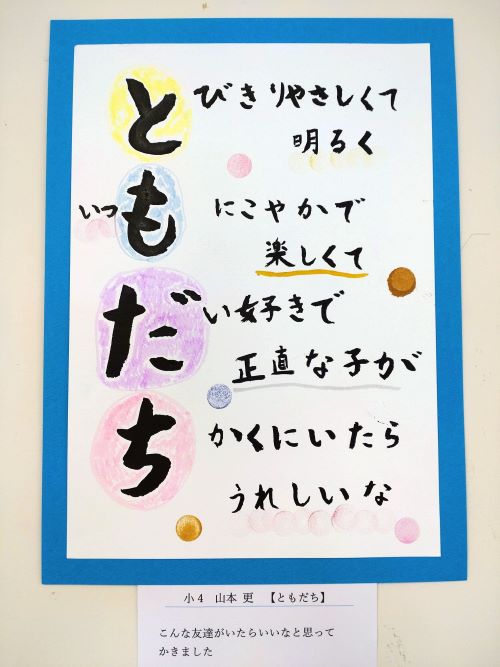 とびきりやさしくて
明るく
いつもにこやかで
楽しくて
だい好きで
正直な子が
ちかくにいたら
うれしいな
小4 山本 更 【ともだち】
こんな友達がいたらいいなと思って
かきました